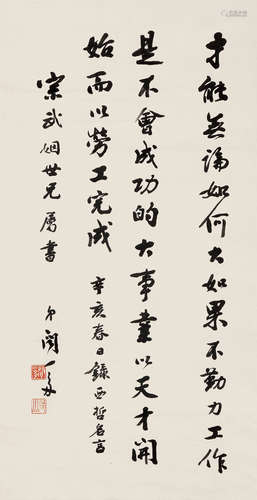 才能無論如何大如果不勤力工作
是不會成功的大事業以天才開
始而以勞工完成
辛亥春日錄西哲名言
宗武姻世兄屬書
弟閔